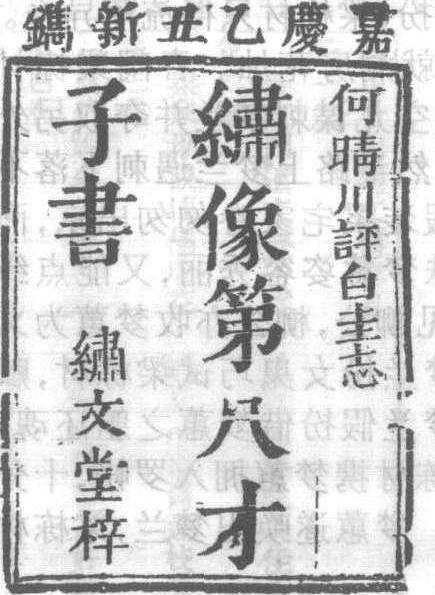 嘉慶乙丑新鐫
何晴川評白圭志
繡像第八才
子書
繡文堂梓